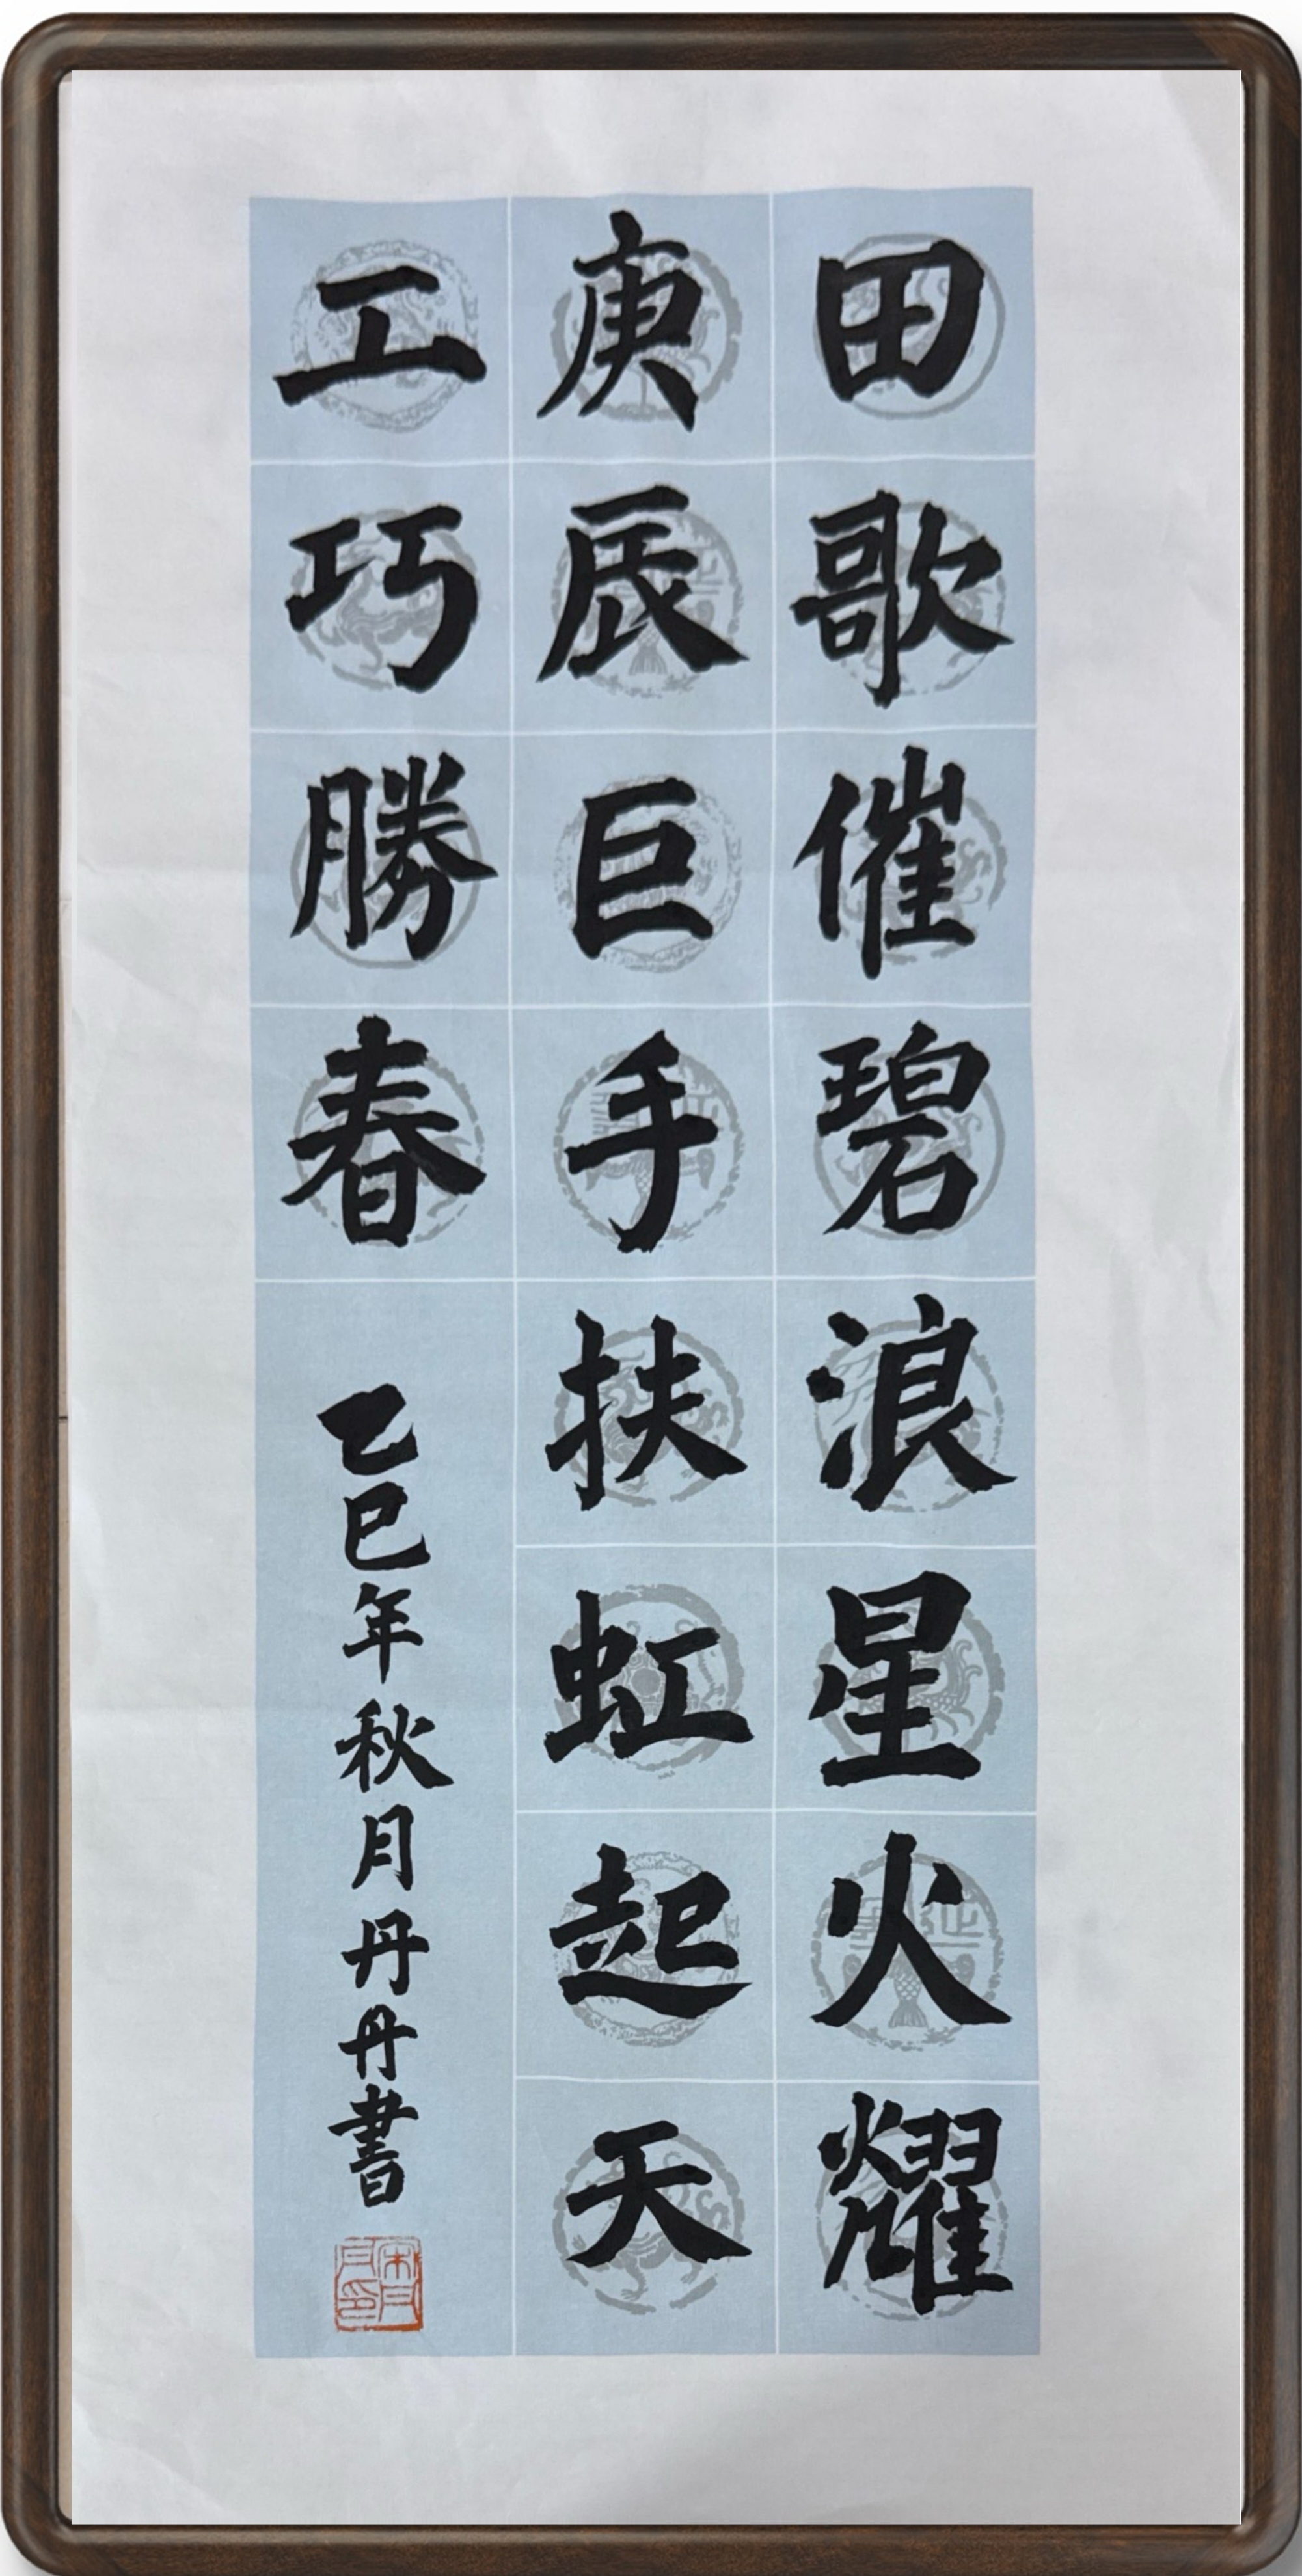 田歌催碧浪星火耀
庚辰巨手扶虹起天
工巧勝春
乙巳年秋月丹丹書